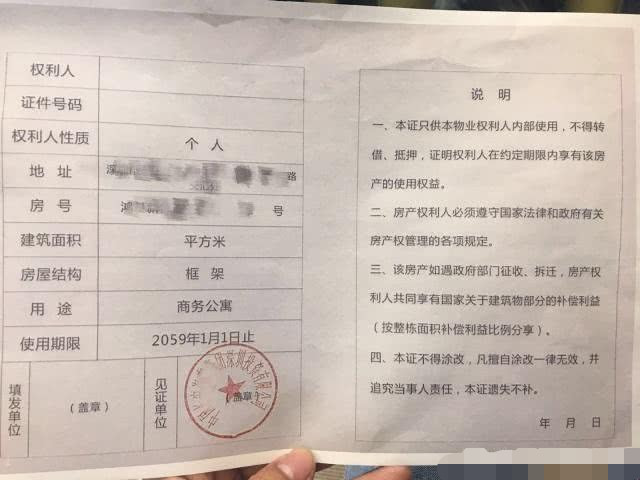 权利人
证件号码
权利人性质 个人
地址 路
房号 号
建筑面积 平方米
房屋结构 框架
用途 商务公寓
使用期限 2059年1月1日止
填发单位 (盖章) 见证单位 (盖章)
说 明
一、本证只供本物业权利人内部使用，不得转
借、抵押，证明权利人在约定期限内享有该房
产的使用权益。
二、房产权利人必须遵守国家法律和政府有关
房产权管理的各项规定。
三、该房产如遇政府部门征收、拆迁，房产权
利人共同享有国家关于建筑物部分的补偿利益
（按整栋面积补偿利益比例分享）。
四、本证不得涂改，凡擅自涂改一律无效，并
追究当事人责任，本证遗失不补。
年 月 日